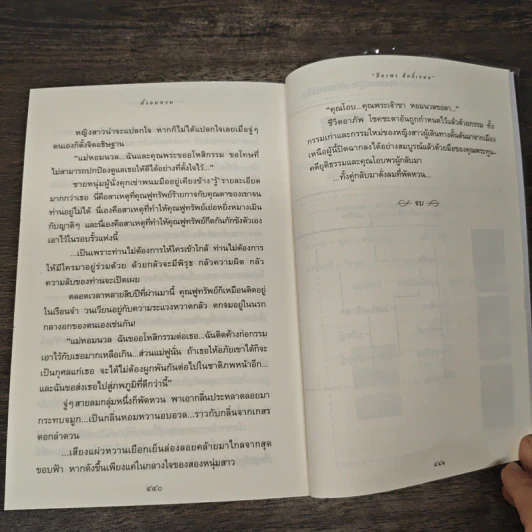 ลำดวนหวน
หญิงสาวน่าจะแปลกใจ หากก็ไม่ได้แปลกใจเลยเมื่อจู่ๆ
ตนเองก็ตั้งจิตอธิษฐาน
"แม่หอมนวล...ฉันและคุณพระขออโหสิกรรม ขอโทษที่
ไม่สามารถปกป้องดูแลเธอให้ดีได้อย่างที่ตั้งใจไว้..."
ชายหนุ่มผู้นั่งคุกเข่าพนมมืออยู่เคียงข้าง'รู้'รายละเอียด
มากกว่าเธอ นี่คือสาเหตุที่คุณฟูทรัพย์ร้ายกาจกับคุณตาของเขาจน
ท่านอยู่ไม่ได้ นี่เองคือสาเหตุที่ทำให้คุณฟูทรัพย์เย่อหยิ่งหมางเมิน
กับญาติๆ และนี่เองคือสาเหตุที่ทำให้คุณฟูทรัพย์กีดกันกักขังตัวเอง
เอาไว้ในรอบรั้วแห่งนี้
...เป็นเพราะท่านไม่ต้องการให้ใครเข้าใกล้ ท่านไม่ต้องการ
ให้มีใครมาอยู่ร่วมด้วย ด้วยกลัวจะมีพิรุธ กลัวความผิด กลัว
ความลับของท่านจะเปิดเผย
ตลอดเวลาหลายสิบปีที่ผ่านมานี้ คุณฟูทรัพย์ก็เหมือนติดอยู่
ในเรือนจำ วนเวียนอยู่กับความระแวงหวาดกลัว ตกจมอยู่ในนรก
กลางอกของตนเองเช่นกัน!
"แม่หอมนวล ฉันขออโหสิกรรมต่อเธอ...ฉันติดค้างก่อกรรม
เอาไว้กับเธอมากเหลือเกิน...ส่วนแม่ฟูนั่น ถ้าเธอให้อภัยเขาได้ก็จะ
เป็นกุศลแก่เธอ จะได้ไม่ต้องผูกพันกันต่อไปในชาติภพหน้าอีก...
และฉันขอส่งเธอไปสู่ภพภูมิที่ดีกว่านี้"
จู่ๆสายลมกลุ่มหนึ่งก็พัดหวน พาเอากลิ่นประหลาดลอยมา
กระทบจมูก...เป็นกลิ่นหอมหวานอบอวล...ราวกับกลิ่นจากเกสร
ดอกลำดวน
...เสียงแผ่วหวานเยือกเย็นล่องลอยคล้ายมาไกลจากสุด
ขอบฟ้า หากดังขึ้นเพียงแค่ในกลางใจของสองหนุ่มสาว
๔๔๐
"คุณโอบ...คุณพระเจ้าขา หอมนวลขอลา..."
ชีวิตอาภัพ โชคชะตาอันถูกกำหนดไว้แล้วด้วยกรรม ทั้ง
กรรมเก่าและกรรมใหม่ของหญิงสาวผู้เดินทางดั้นด้นมาจากเมือง
เหนือผู้นี้ปิดฉากลงได้อย่างสมบูรณ์แล้วด้วยมือของคุณพระคุณ-
คดียุติธรรมและคุณโอบพรผู้กลับมา
...ทั้งคู่กลับมาดั่งลมที่พัดหวน...
จบ
๔๔๑